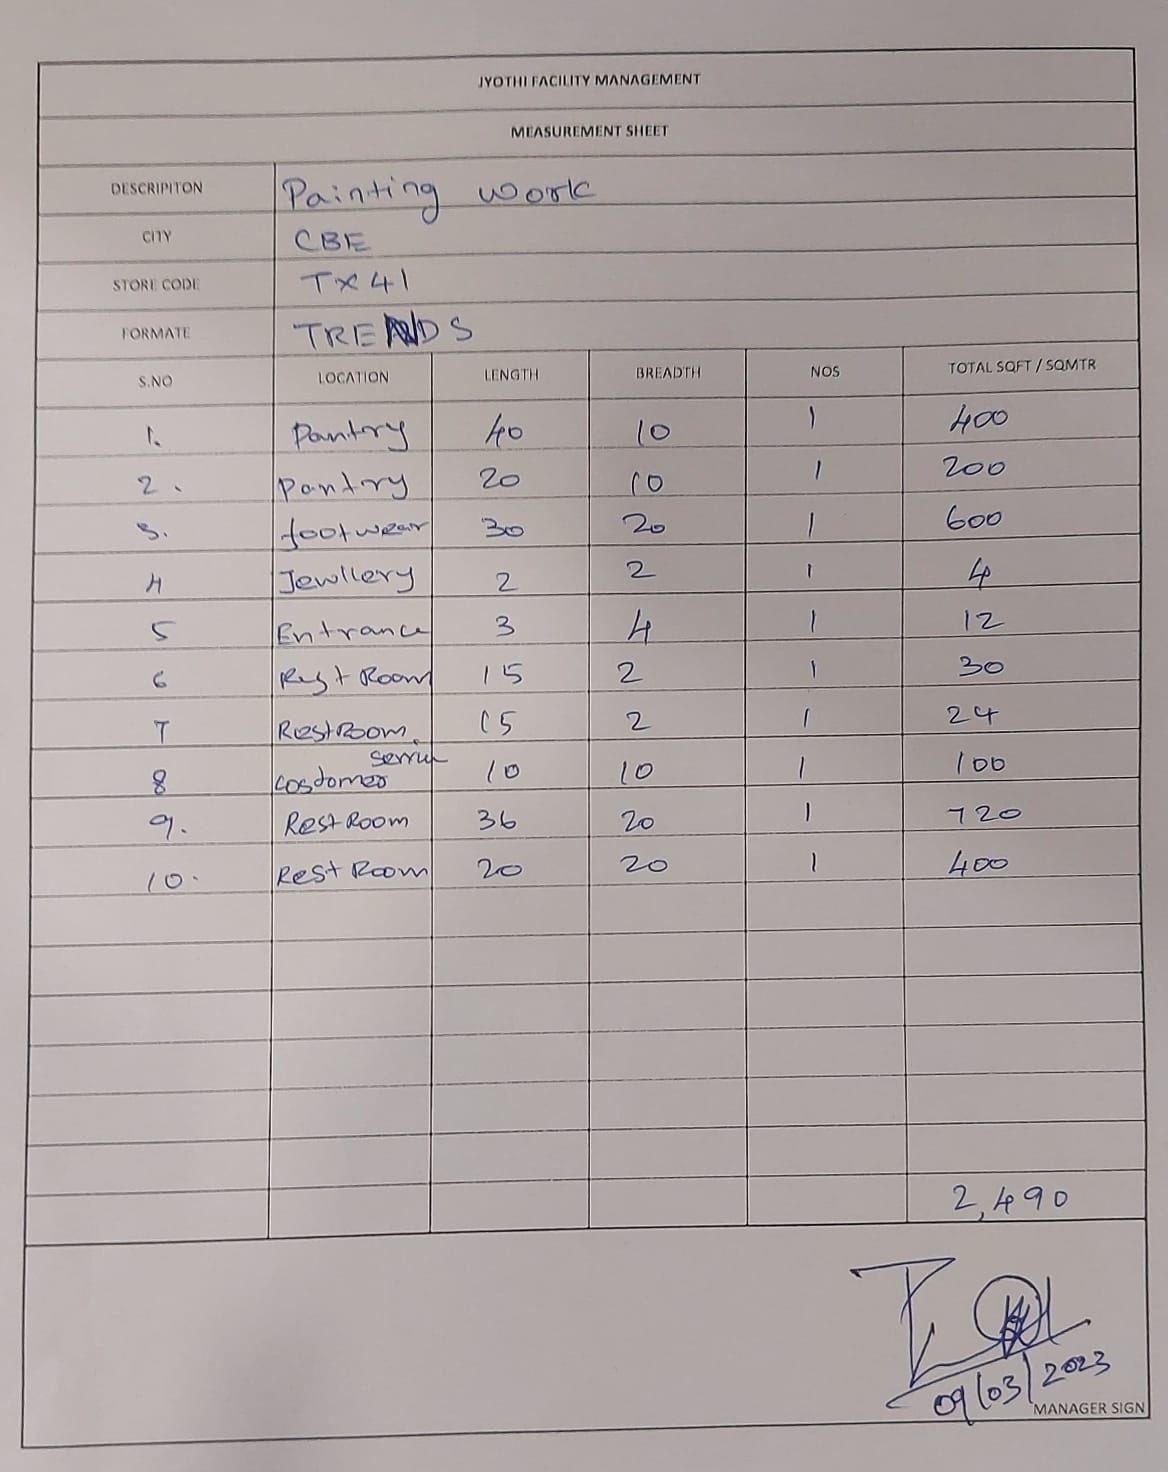 JYOTHI FACILITY MANAGEMENT
MEASUREMENT SHEET
DESCRIPITON Painting work
CITY CBE
STORE CODE TX41
FORMATE TRENDS
S.NO LOCATION LENGTH BREADTH NOS TOTAL SQFT / SQMTR
1. Pantry 40 10 1 400
2. Pantry 20 10 1 200
3. footwear 30 20 1 600
4 Jewllery 2 2 1 4
5 Entrance 3 4 1 12
6 Rest Room 15 2 1 30
7 Rest Room 15 2 1 24
8 Costomer 10 10 1 100
9. Rest Room 36 20 1 720
10. Rest Room 20 20 1 400
2,490
09/03/2023
MANAGER SIGN